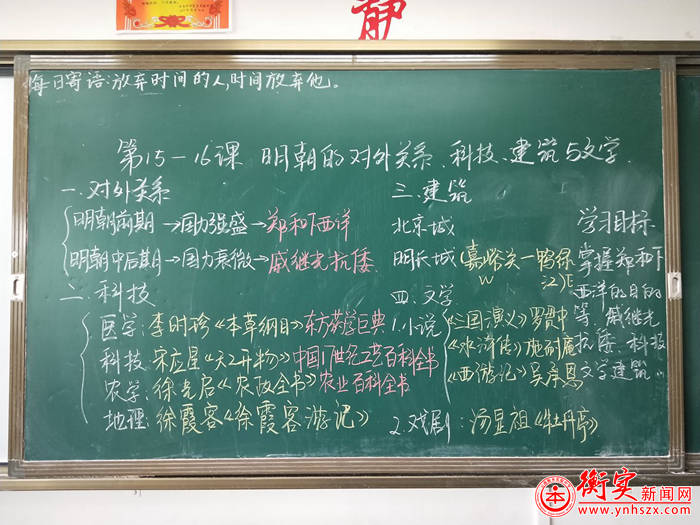 静
每日寄语:放弃时间的人,时间放弃他。
第15-16课 明朝的对外关系、科技、建筑与文学
一.对外关系
明朝前期→国力强盛→郑和下西洋
明朝中后期→国力衰微→戚继光抗倭
二.科技
医学:李时珍《本草纲目》东方药学巨典
科技:宋应星《天工开物》中国17世纪工艺百科全书
农学:徐光启《农政全书》农业百科全书
地理:徐霞客《徐霞客游记》
三.建筑
北京城
明长城(嘉峪关—鸭绿
W 江)E
四.文学
1.小说
《三国演义》罗贯中
《水浒传》施耐庵
《西游记》吴承恩
2.戏剧:汤显祖《牡丹亭》
学习目标
掌握郑和下
西洋的目的
等,戚继光
抗倭,科技
文学建筑。
衡实新闻网
www.ynhszx.com